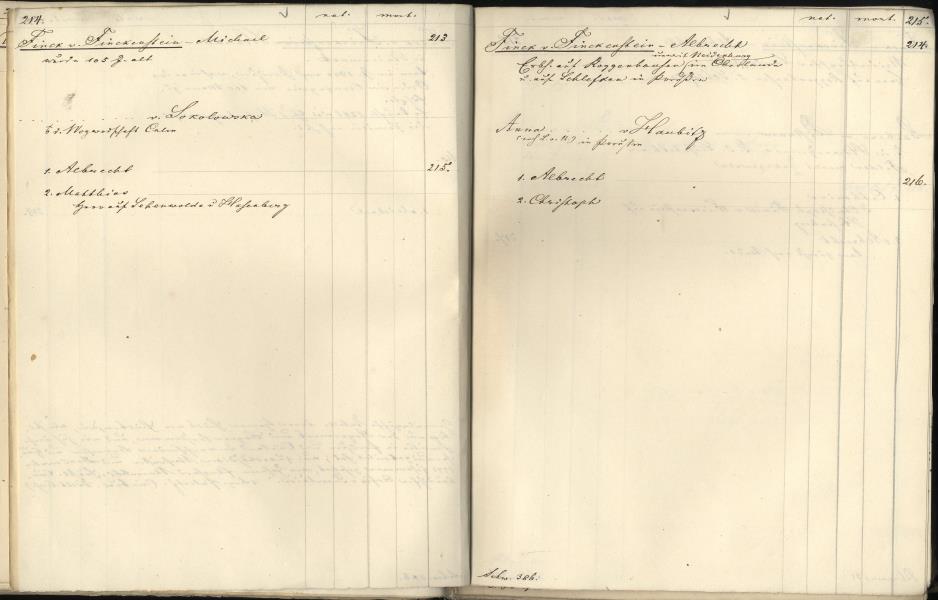 214.
nat. mort.
Finck v. Finckenstein - Michael 213
wurde 105 J. alt
v. Sokolowska
d. Woywodschaft Culm
1. Albrecht 215.
2. Matthias
Herr auf Seberwalde u Hasenberg
nat. mort. 215.
Finck v. Finckenstein - Albrecht 214.
unweit Neidenburg
Erbh. auf Roggenhausen im Oberlande
u. auf Schlefken in Preußen
Anna v. Haubitz
in Preußen
1. Albrecht 216.
2. Christoph
Schw. 386.